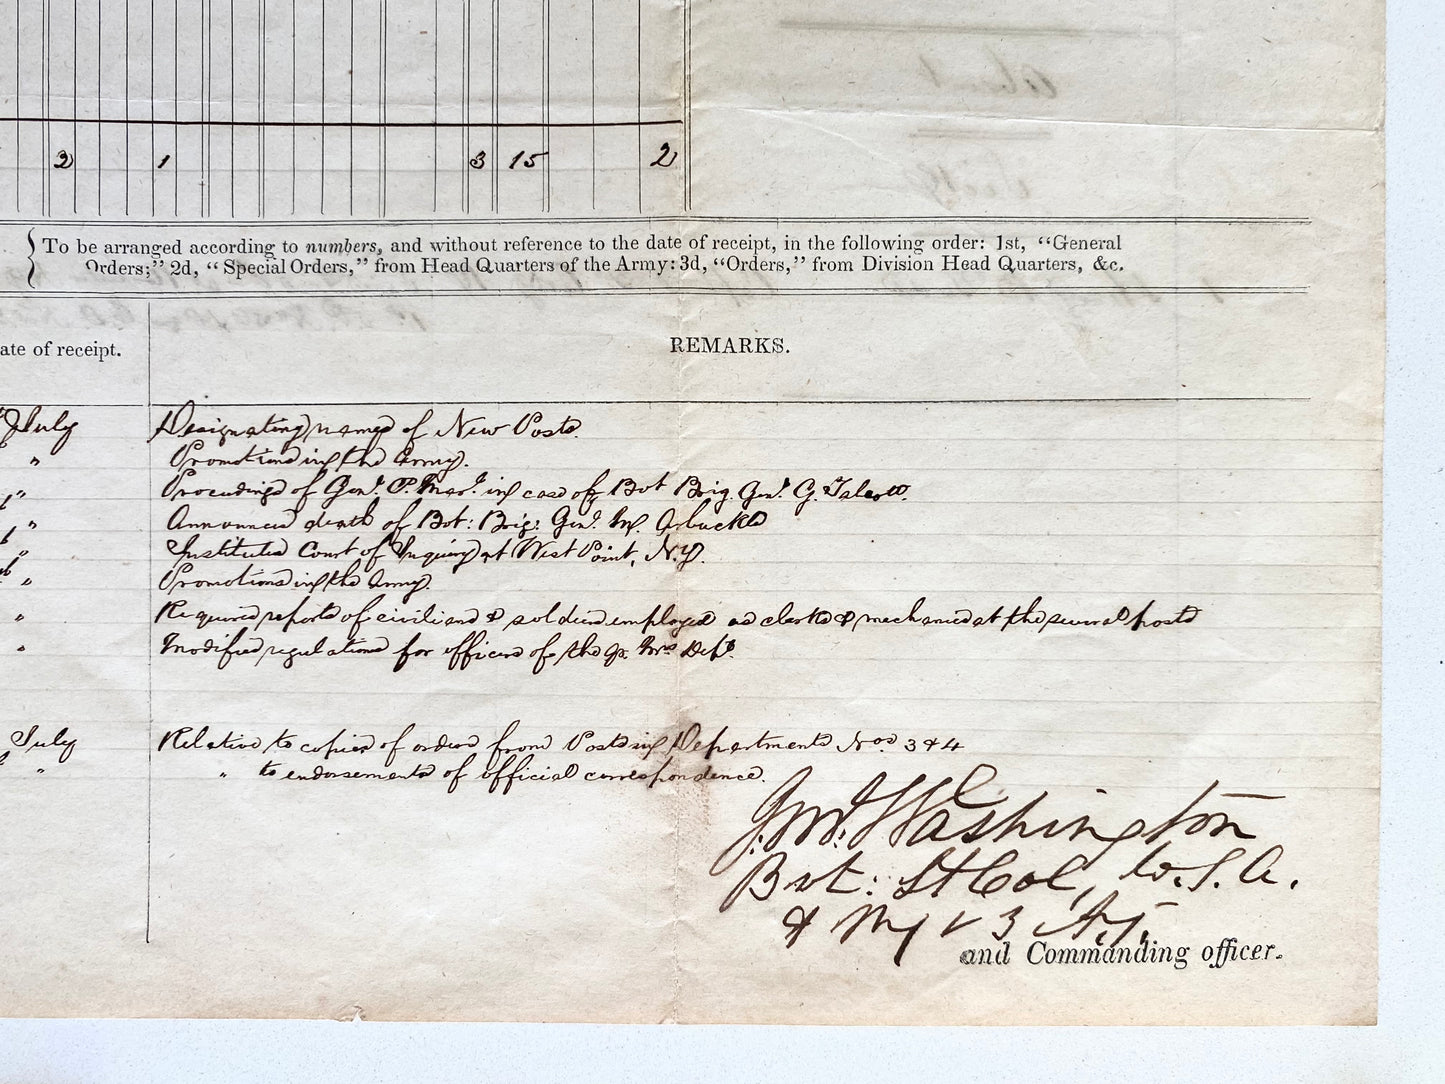 2 1 3 15 2
To be arranged according to numbers, and without reference to the date of receipt, in the following order: 1st, “General
Orders;” 2d, “Special Orders,” from Head Quarters of the Army: 3d, “Orders,” from Division Head Quarters, &c.
ate of receipt. REMARKS.
July Designating names of New Posts.
" Promotions in the Army.
" Proceedings of Genl. C. Mar. in case of Bvt Brig. Genl. G. Talcott.
" Announced death of Bvt: Brig: Genl. M. Arbuckle
" Instituted Court of Inquiry at West Point, N.Y.
" Promotions in the Army.
" Required reports of civilians & soldiers employed as clerks & mechanics at the several posts
" Modified regulations for officers of the Qr Mrs Dept.
July Relative to copies of orders from Posts in Departments Nos 3 & 4
" " to endorsements of official correspondence.
J. M. Washington
Bvt: Lt Col, U.S.A.
& Maj 3 Ay,
and Commanding officer.